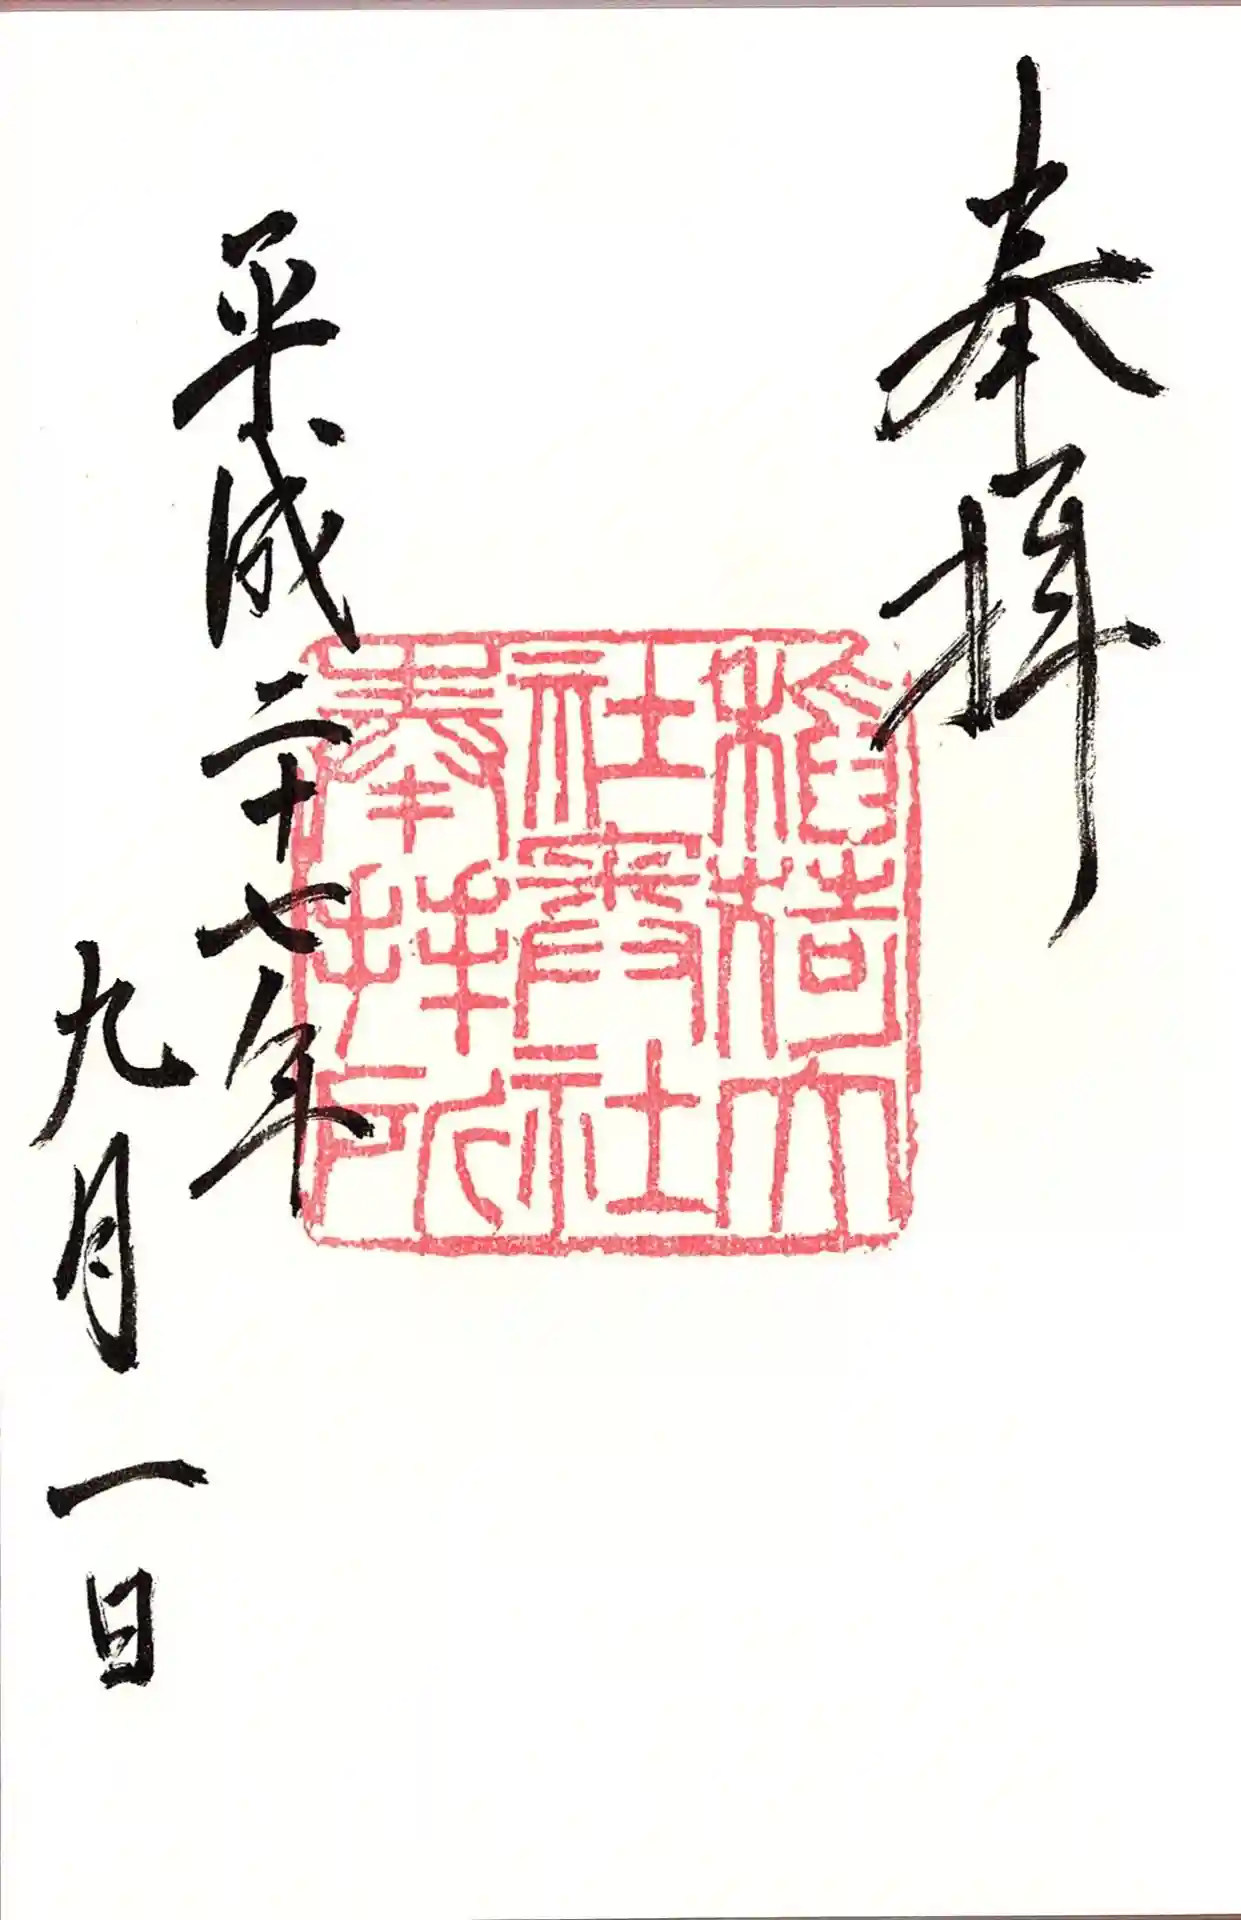 奉拝
稲荷大
社奥社
奉拝所
平成二十七年
九月一日